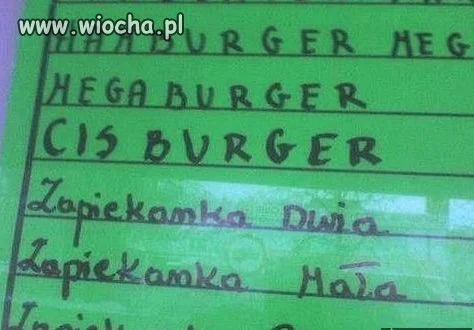 www.wiocha.pl
HAMBURGER MEG
MEGABURGER
CISBURGER
Zapiekamka Duuia
Zapiekamka Mała